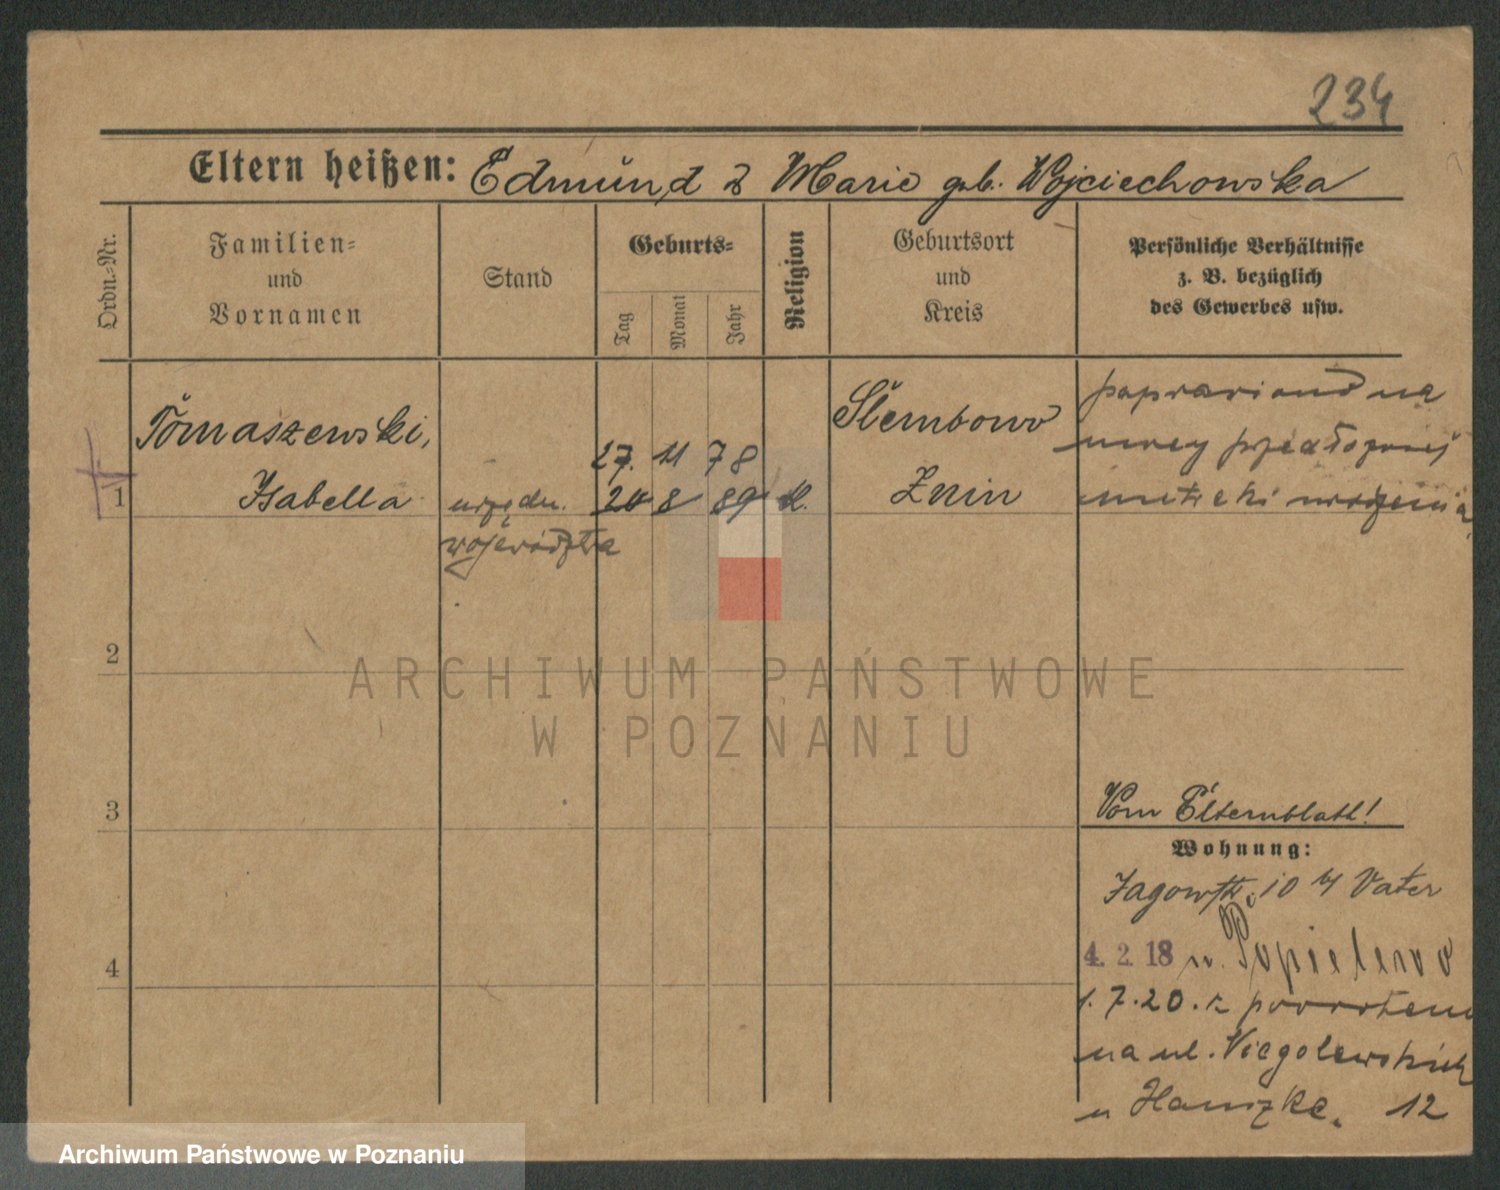 234
Eltern heißen: Edmund & Marie geb. Wojciechowska
Ordn.-Nr.
Familien-
und
Vornamen
Stand
Geburts-
Tag
Monat
Jahr
Religion
Geburtsort
und
Kreis
Persönliche Verhältnisse
z. B. bezüglich
des Gewerbes usw.
Tomaszewski,
27. 11 78
Slembowo
poprawiono na
mocy przedłożonej
1 Isabella urzędn. 24 8 89 K. Znin
metryki urodzenia
województwa
2
3
4
Vom Elternblatt!
Wohnung:
Jagowstr. 10 b/ Vater
4. 2. 18 n. Popielewo
1. 7. 20. z powrotem
na ul. Niegolewskich
u Haniszke. 12
ARCHIWUM PAŃSTWOWE
W POZNANIU
Archiwum Państwowe w Poznaniu